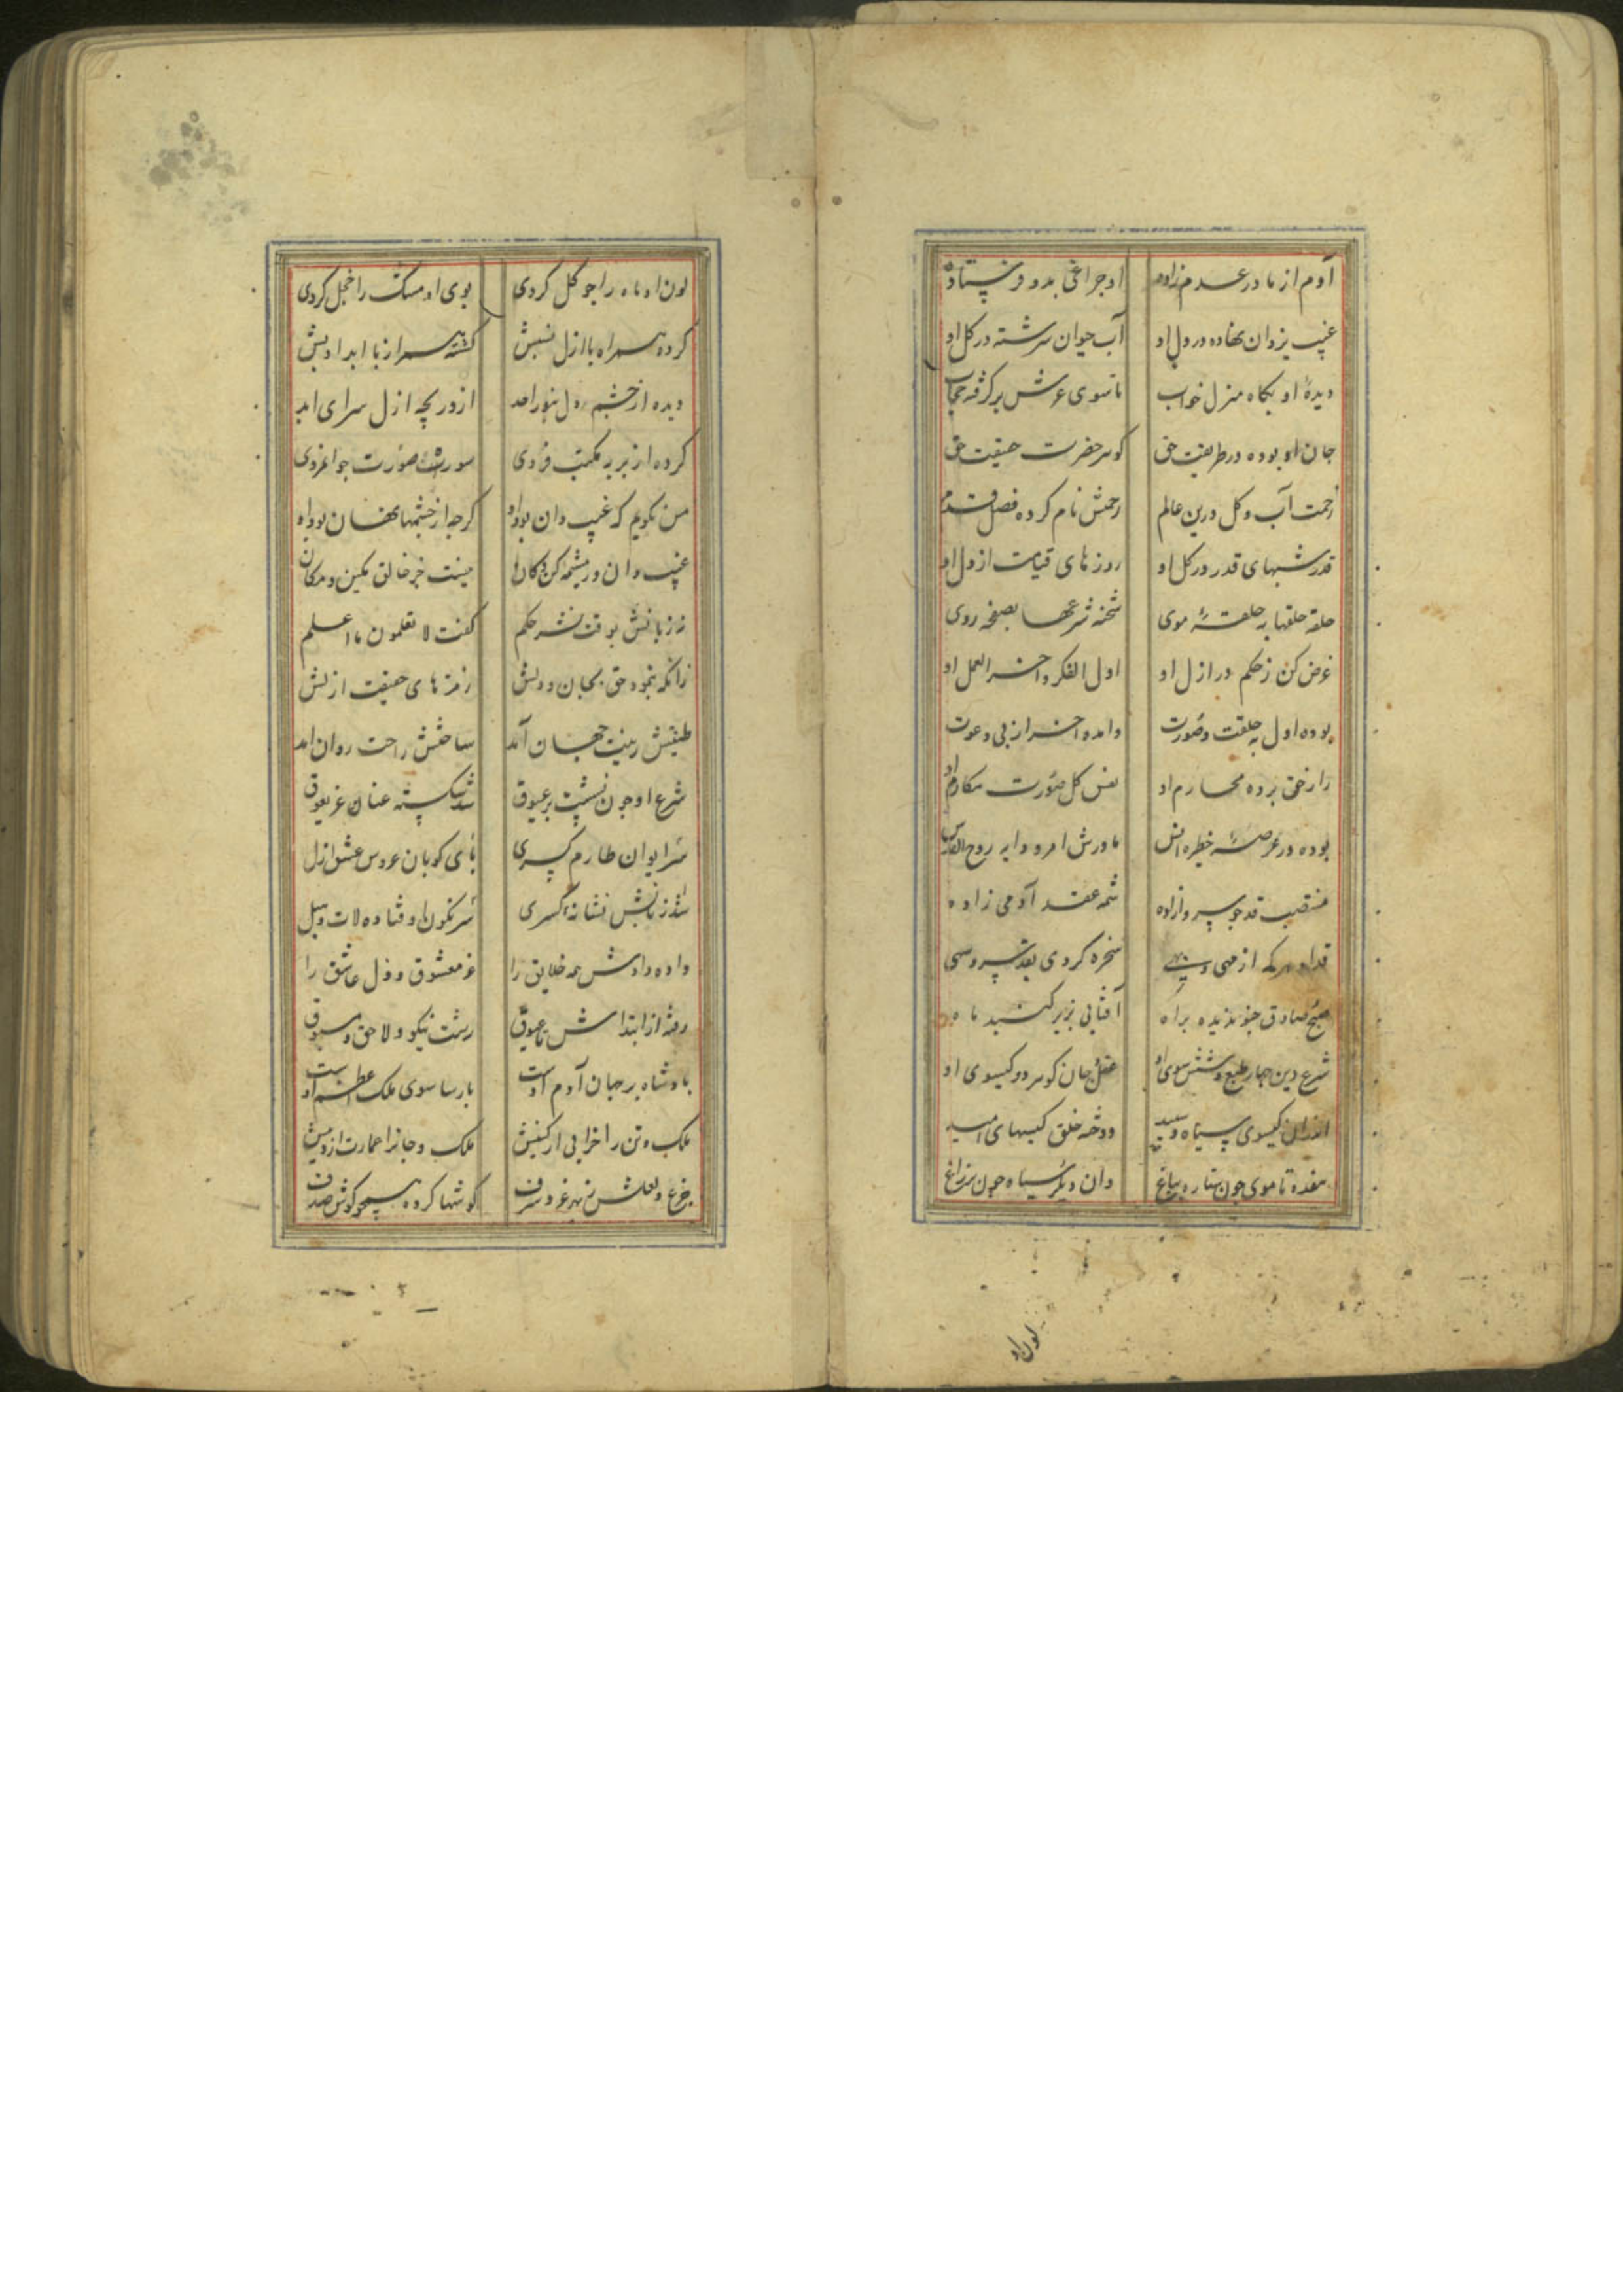 آدم از مادر عدم زاده اوجراغی بدو فرستاده
غیب یزدان نهاده در دل او آب حیوان سرشته در کل او
دیدهٔ او بکاه منزل خواب تا سوی عرش برکرفته حجاب
جان او بوده در طریقت حق کوهر حضرت حقیقت حق
زحمت آب و کل درین عالم رحمتش نام کرده فصل قدم
قدر شبهای قدر در کل او روز های قیامت از دل او
حلقه حلقها به حلقهٔ موی شحنه شرعها بصفحه روی
غرض کن زحکم در ازل او اول الفکر و اخر العمل او
بوده اول به خلقت و صورت وامده اخر از پی دعوت
راز حق برده محارم او نفس کل صورت مکارم او
بوده در عرصهٔ حظیره انس مادرش امر و دایه روح القدس
منتصب قد جو سرو ازاده ثمه عقد آدمی زاده
قد او هر که از مهی و بهی سخره کردی بقد سرو سهی
صبح صادق جنو ندیده براه آفتابی بزیر کنبد ماه
شرع دین جهار طبع و شش سوی او عقل و جان کوهر دو کیسوی او
اندران کیسوی سیاه و سپید دوخته خلق کیسهای امید
هفده تا موی جون ستاره بباغ وان دیکر سیاه جون پر زاغ
لون او
لون او ماه را جو کل کردی بوی او مسک را خجل کردی
کرده همراه با ازل نسبش کشته همراز با ابد ادبش
دیده از خشم دل بنور احد از دریچه ازل سرای ابد
کرده از بر به مکتب فردی سورت صورت جوامردی
من نکویم که غیب دان بود او کرجه از خشمها نهان بود او
غیب دان در مشیمه کن فکان نیست جز خالق مکین و مکان
زر زبانش بوقت نشر حکم کفت لا تعلمون ما اعلم
زانکه بنمود حق بجان و دلش رمز های حقیقت ازلش
طینتش زینت جهان آمد ساختش راحت روان امد
شرع او جون نشست بر عیوق شد شکسته عنان عز یعوق
سر ایوان طارم کسری پای کوبان عروس عشق ازل
شد زبانش نشانهٔ کسری سرنکون او فتاده لات و هبل
داده دادش همه خلایق را عز معشوق و ذل عاشق را
رفته از ابتداش تا عیوق زشت نیکو و لاحق و مسبوق
بادشاه بر جهان آدم اوست بارسا سوی ملک اعظم اوست
ملک تن را خرابی از کینش ملک و جانرا عمارت از دینش
جزع و لعلش ز بهر غز و شرف کوشها کرده همجو کوش صدف